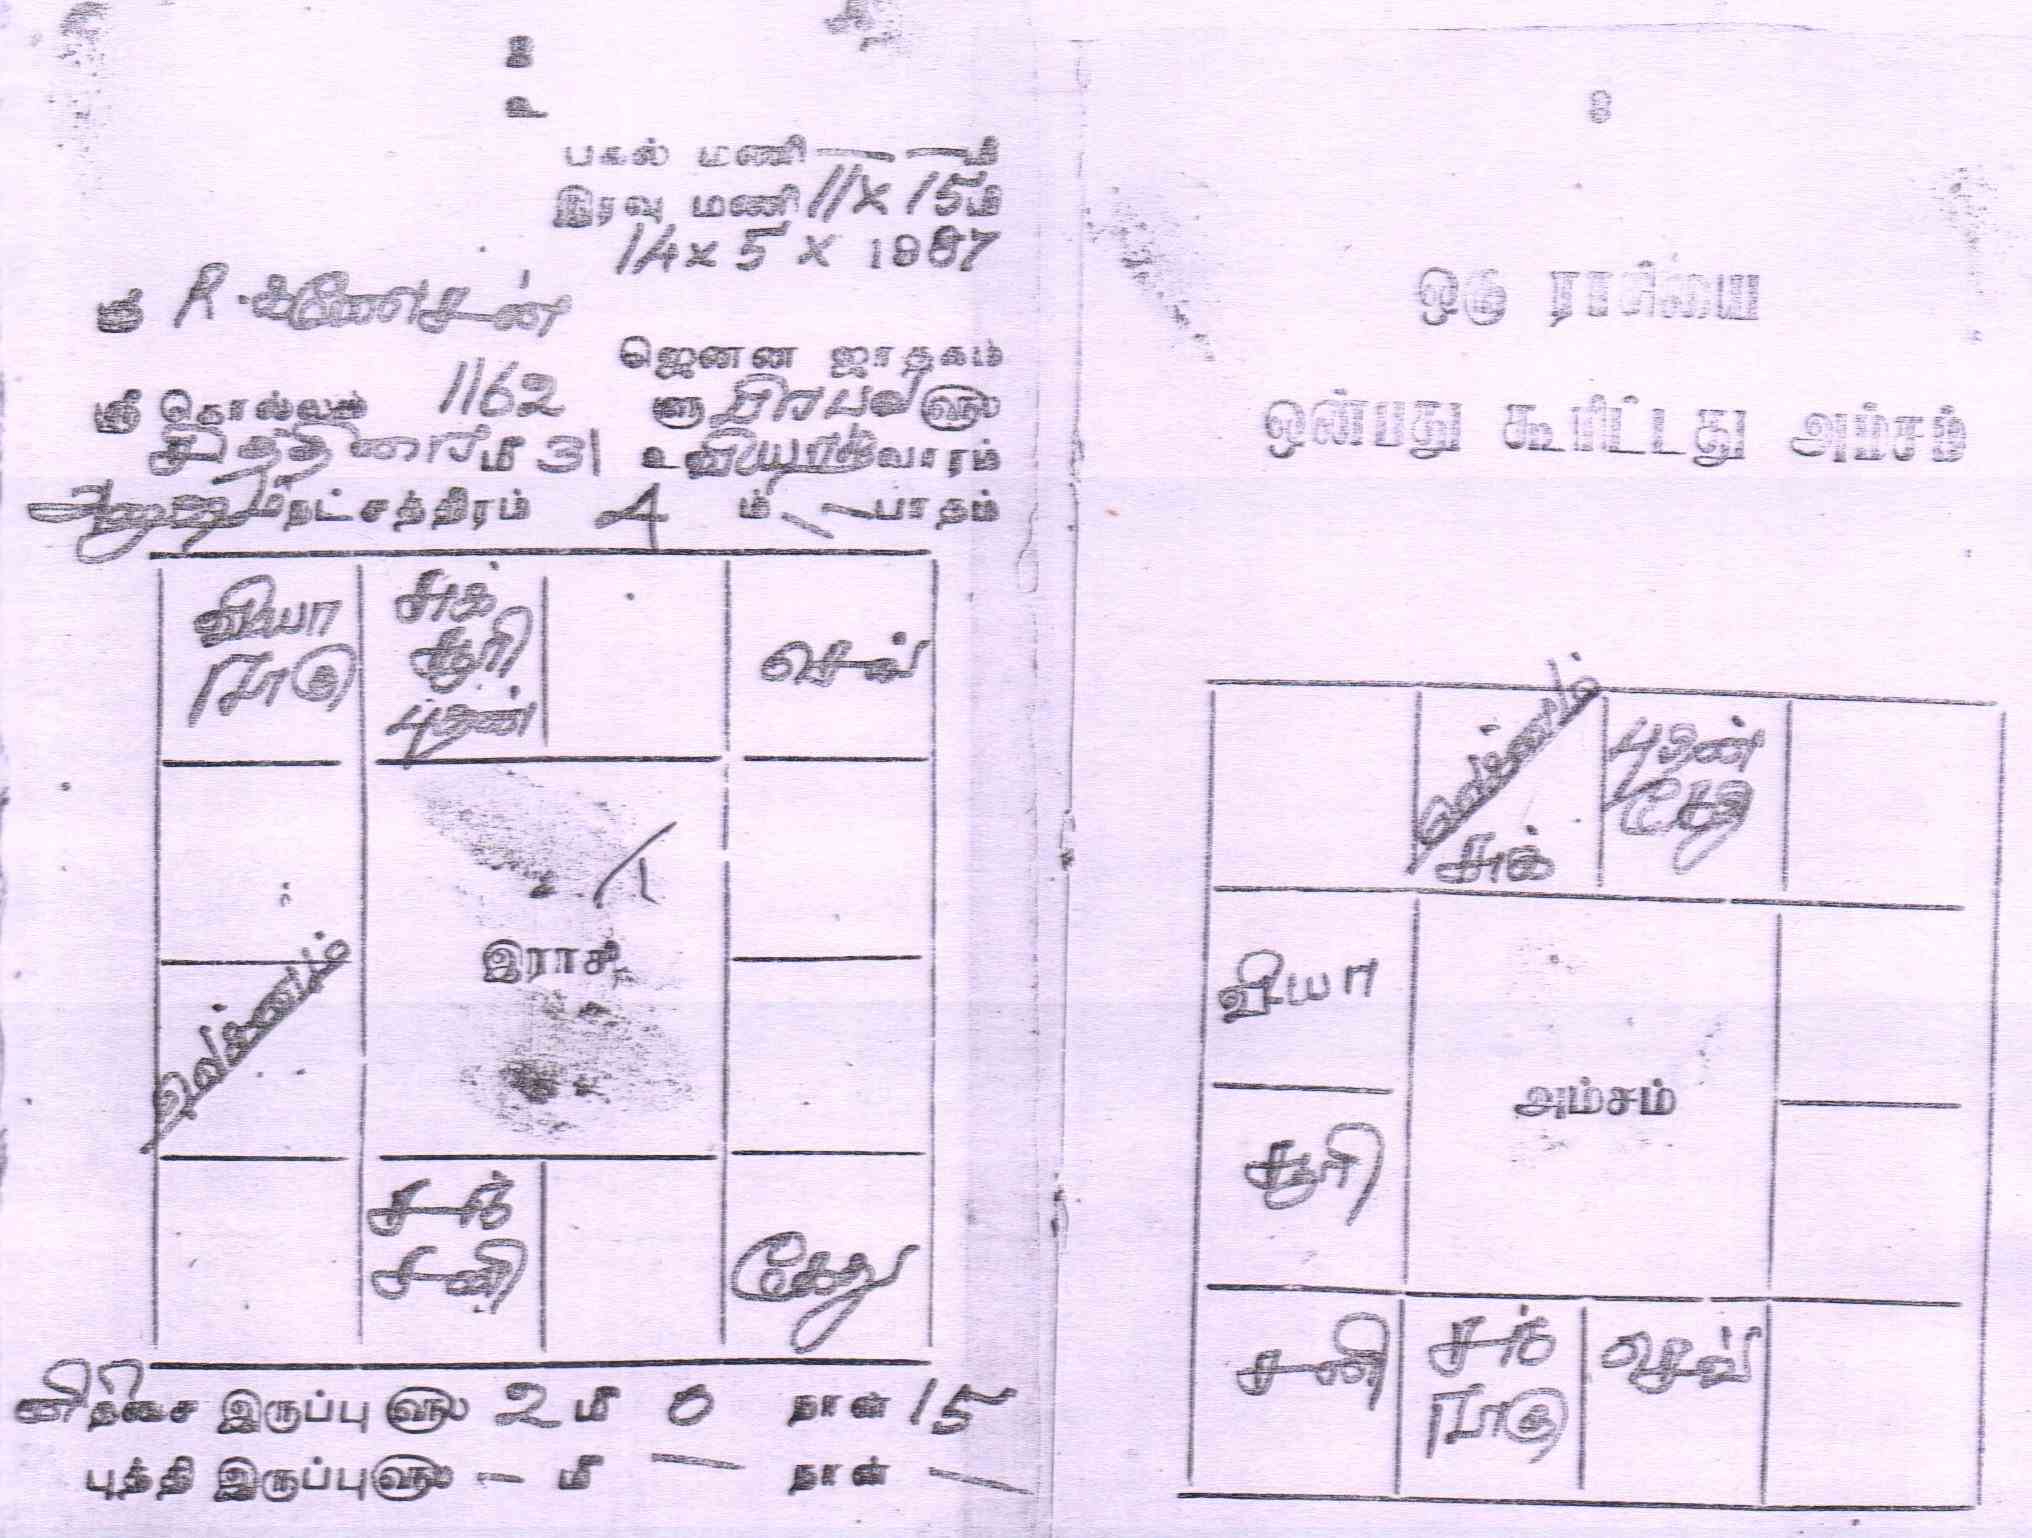 உ
பகல் மணி — — மி
இரவு மணி 11 x 15 மி
14 x 5 x 1987
ஸ்ரீ R. கணேசன்
ஜெனன ஜாதகம்
ஸ்ரீ கொல்லம் 1162 ளு பிரபவ ௵
சித்திரை மீ 31 உ வியாழ வாரம்
அனுஷம் நட்சத்திரம் 4 ம் — பாதம்
வியா
ராகு
சுக்
சூரி
புதன்
செவ்
இராசி
லக்னம்
சந்
சனி
கேது
சனி திசை இருப்பு ௵ 2 மீ 0 நாள் 15
புத்தி இருப்பு ௵ — மீ — நாள் —
8
ஒரு ராசியை
ஒன்பது கூரிட்டது அம்சம்
லக்னம்
சுக்
புதன்
கேது
வியா
அம்சம்
சூரி
சனி
சந்
ராகு
செவ்